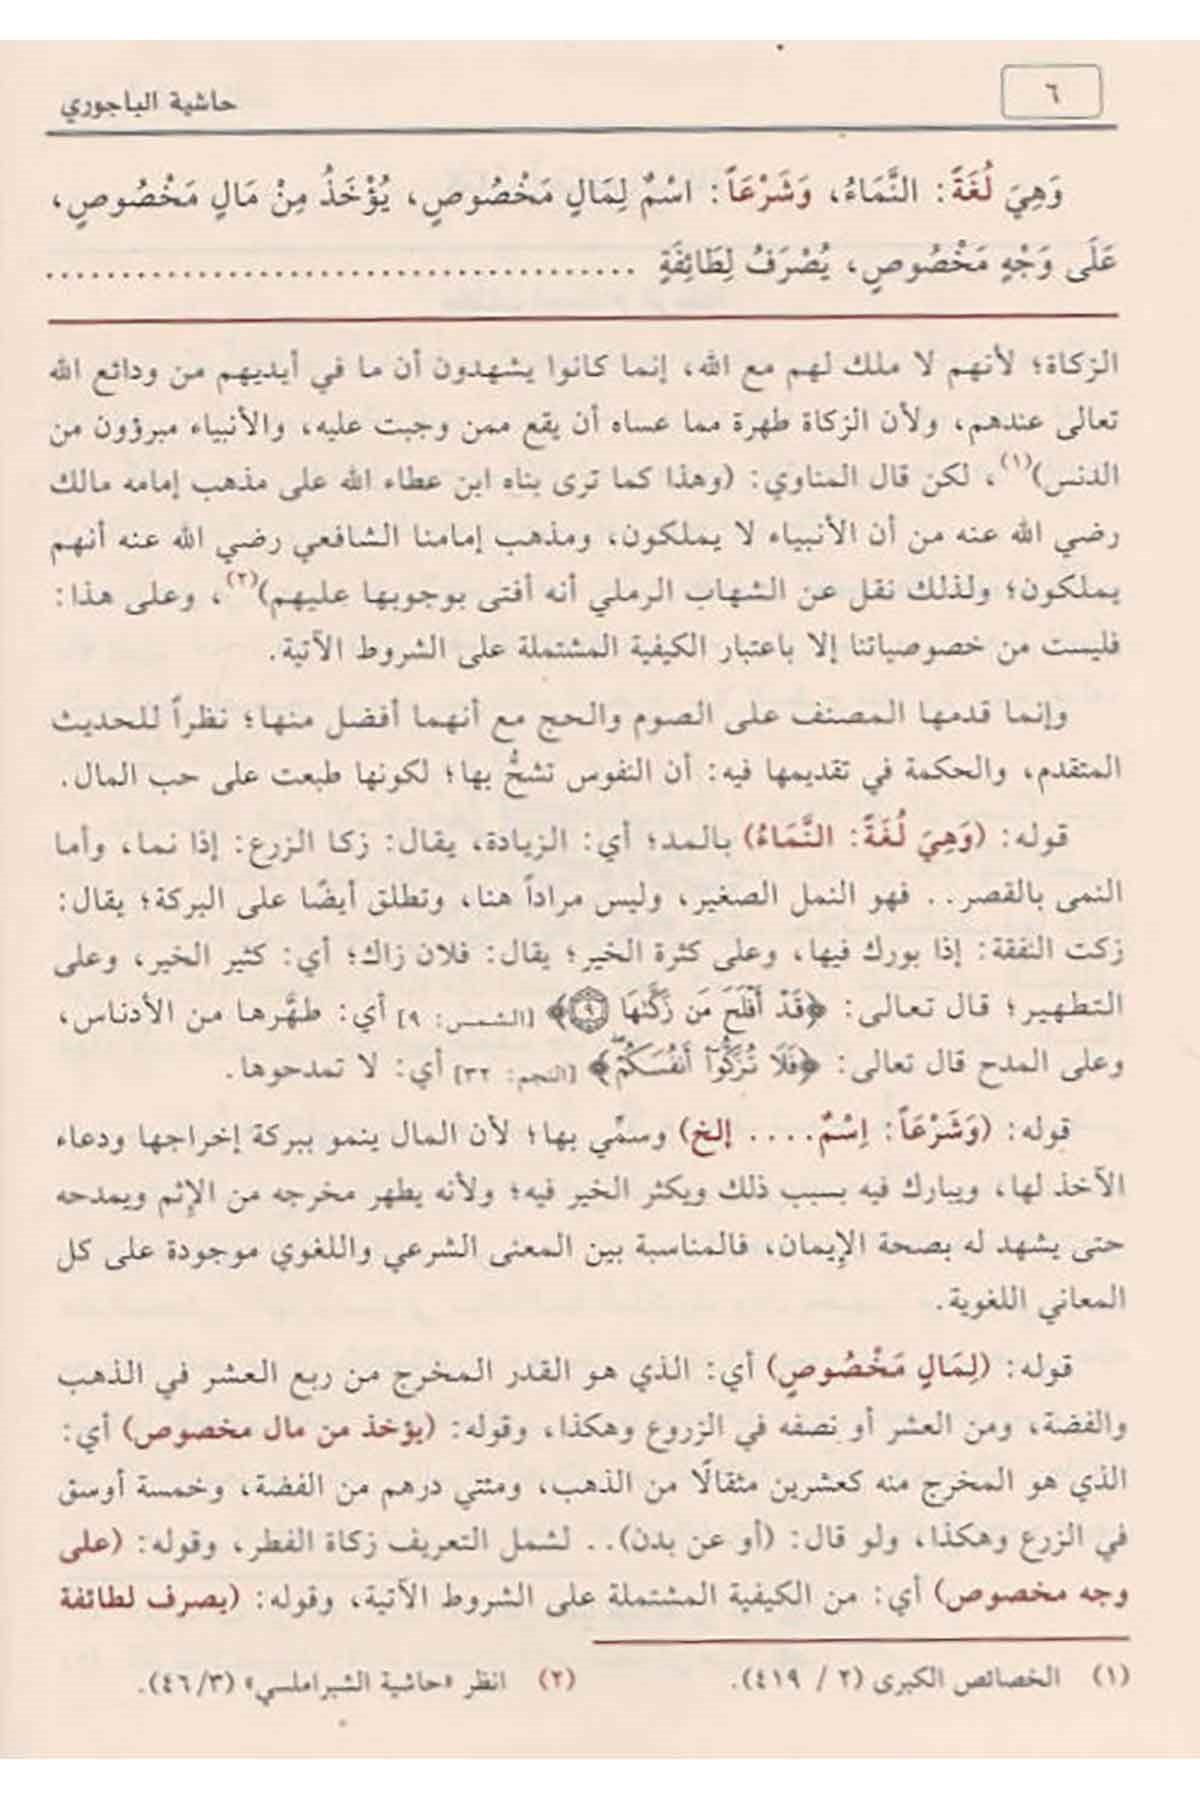 ٦
حاشية الباجوري
وَهِيَ لُغَةً: النَّمَاءُ، وَشَرْعَاً: اسْمٌ لِمَالٍ مَخْصُوصٍ، يُؤْخَذُ مِنْ مَالٍ مَخْصُوصٍ،
عَلَى وَجْهٍ مَخْصُوصٍ، يُصْرَفُ لِطَائِفَةٍ ........................................
الزكاة؛ لأنهم لا ملك لهم مع الله، إنما كانوا يشهدون أن ما في أيديهم من ودائع الله
تعالى عندهم، ولأن الزكاة طهرة مما عساه أن يقع ممن وجبت عليه، والأنبياء مبرؤون من
الدنس)(١)، لكن قال المناوي: (وهذا كما ترى بناه ابن عطاء الله على مذهب إمامه مالك
رضي الله عنه من أن الأنبياء لا يملكون، ومذهب إمامنا الشافعي رضي الله عنه أنهم
يملكون؛ ولذلك نقل عن الشهاب الرملي أنه أفتى بوجوبها عليهم)(٢)، وعلى هذا:
فليست من خصوصياتنا إلا باعتبار الكيفية المشتملة على الشروط الآتية.
وإنما قدمها المصنف على الصوم والحج مع أنهما أفضل منها؛ نظراً للحديث
المتقدم، والحكمة في تقديمها فيه: أن النفوس تشحُّ بها؛ لكونها طبعت على حب المال.
قوله: (وَهِيَ لُغَةً: النَّمَاءُ) بالمد؛ أي: الزيادة، يقال: زكا الزرع: إذا نما، وأما
النمى بالقصر.. فهو النمل الصغير، وليس مراداً هنا، وتطلق أيضًا على البركة؛ يقال:
زكت النفقة: إذا بورك فيها، وعلى كثرة الخير؛ يقال: فلان زاك؛ أي: كثير الخير، وعلى
التطهير؛ قال تعالى: ﴿قَدْ أَفْلَحَ مَن زَكَّىٰهَا ٩﴾ [الشمس: ٩] أي: طهَّرها من الأدناس،
وعلى المدح قال تعالى: ﴿فَلَا تُزَكُّوٓا۟ أَنفُسَكُمْ ۖ﴾ [النجم: ٣٢] أي: لا تمدحوها.
قوله: (وَشَرْعَاً: اِسْمٌ.... إلخ) وسمِّي بها؛ لأن المال ينمو ببركة إخراجها ودعاء
الآخذ لها، ويبارك فيه بسبب ذلك ويكثر الخير فيه؛ ولأنه يطهر مخرجه من الإثم ويمدحه
حتى يشهد له بصحة الإيمان، فالمناسبة بين المعنى الشرعي واللغوي موجودة على كل
المعاني اللغوية.
قوله: (لِمَالٍ مَخْصُوصٍ) أي: الذي هو القدر المخرج من ربع العشر في الذهب
والفضة، ومن العشر أو نصفه في الزروع وهكذا، وقوله: (يؤخذ من مال مخصوص) أي:
الذي هو المخرج منه كعشرين مثقالًا من الذهب، ومئتي درهم من الفضة، وخمسة أوسق
في الزرع وهكذا، ولو قال: (أو عن بدن).. لشمل التعريف زكاة الفطر، وقوله: (على
وجه مخصوص) أي: من الكيفية المشتملة على الشروط الآتية، وقوله: (يصرف لطائفة
(١) الخصائص الكبرى (٢ / ٤١٩).
(٢) انظر «حاشية الشبراملسي» (٤٦/٣).